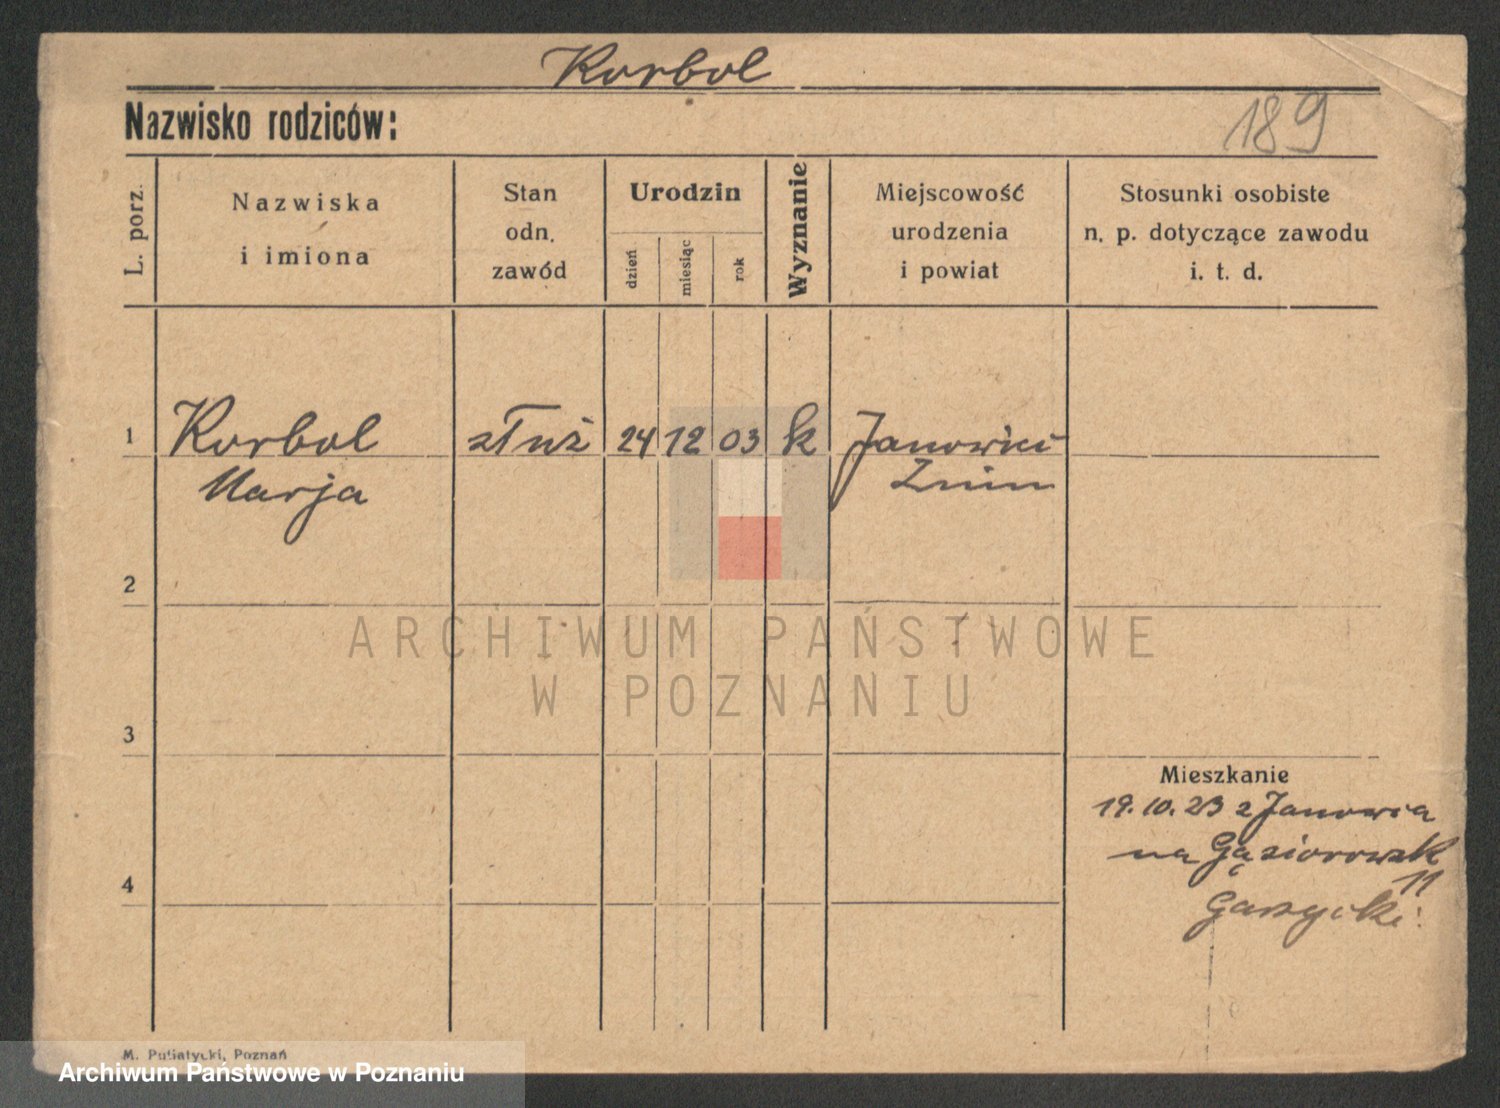 Korbol
Nazwisko rodziców:
189
L. porz.
Nazwiska
i imiona
Stan
odn.
zawód
Urodzin
dzień
miesiąc
rok
Wyznanie
Miejscowość
urodzenia
i powiat
Stosunki osobiste
n. p. dotyczące zawodu
i. t. d.
1 Korbol służ 24 12 03 k Janowiec
Marja Żnin
2
3
4
ARCHIWUM PAŃSTWOWE
W POZNANIU
Mieszkanie
19.10.23 z Janowca
na Gąsiorowsk
11
M. Putiatycki, Poznań
Archiwum Państwowe w Poznaniu